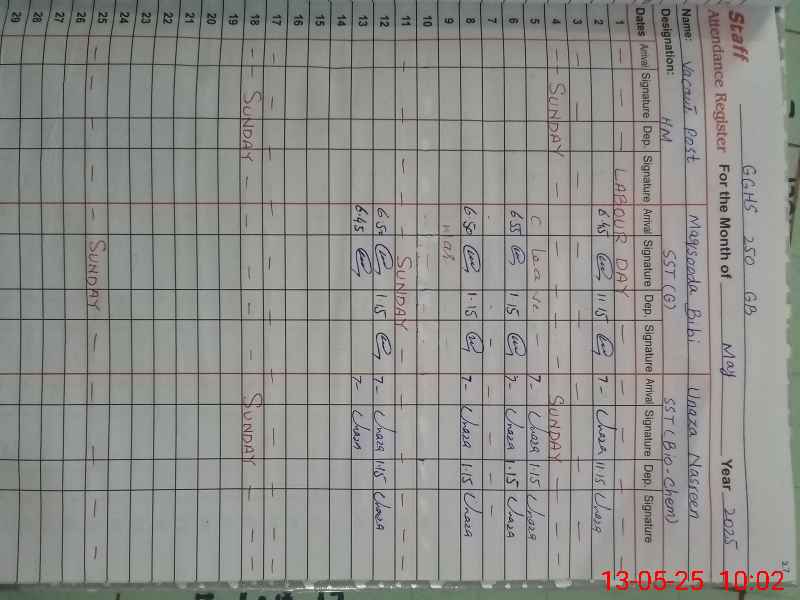 27
GGHS 250 GB
Staff
Attendance Register For the Month of May Year 2025
Name: Vacant Post Maqsooda Bibi Unaza Nasreen
Designation: HM SST (G) SST (Bio-Chem)
Dates Arrival Signature Dep. Signature Arrival Signature Dep. Signature Arrival Signature Dep. Signature
1 LABOUR DAY
2 6.45 11.15 7- Unaza 11.15 Unaza
3
4 SUNDAY SUNDAY
5 C leave 7- Unaza 1.15 Unaza
6 6.55 1.15 7- Unaza 1.15 Unaza
7
8 6.50 1.15 7- Unaza 1.15 Unaza
9
10
11 SUNDAY
12 6.50 1.15 7- Unaza 1.15 Unaza
13 6.45 7- Unaza
14
15
16
17
18 SUNDAY SUNDAY
19
20
21
22
23
24
25 SUNDAY
26
27
28
29
13-05-25 10:02